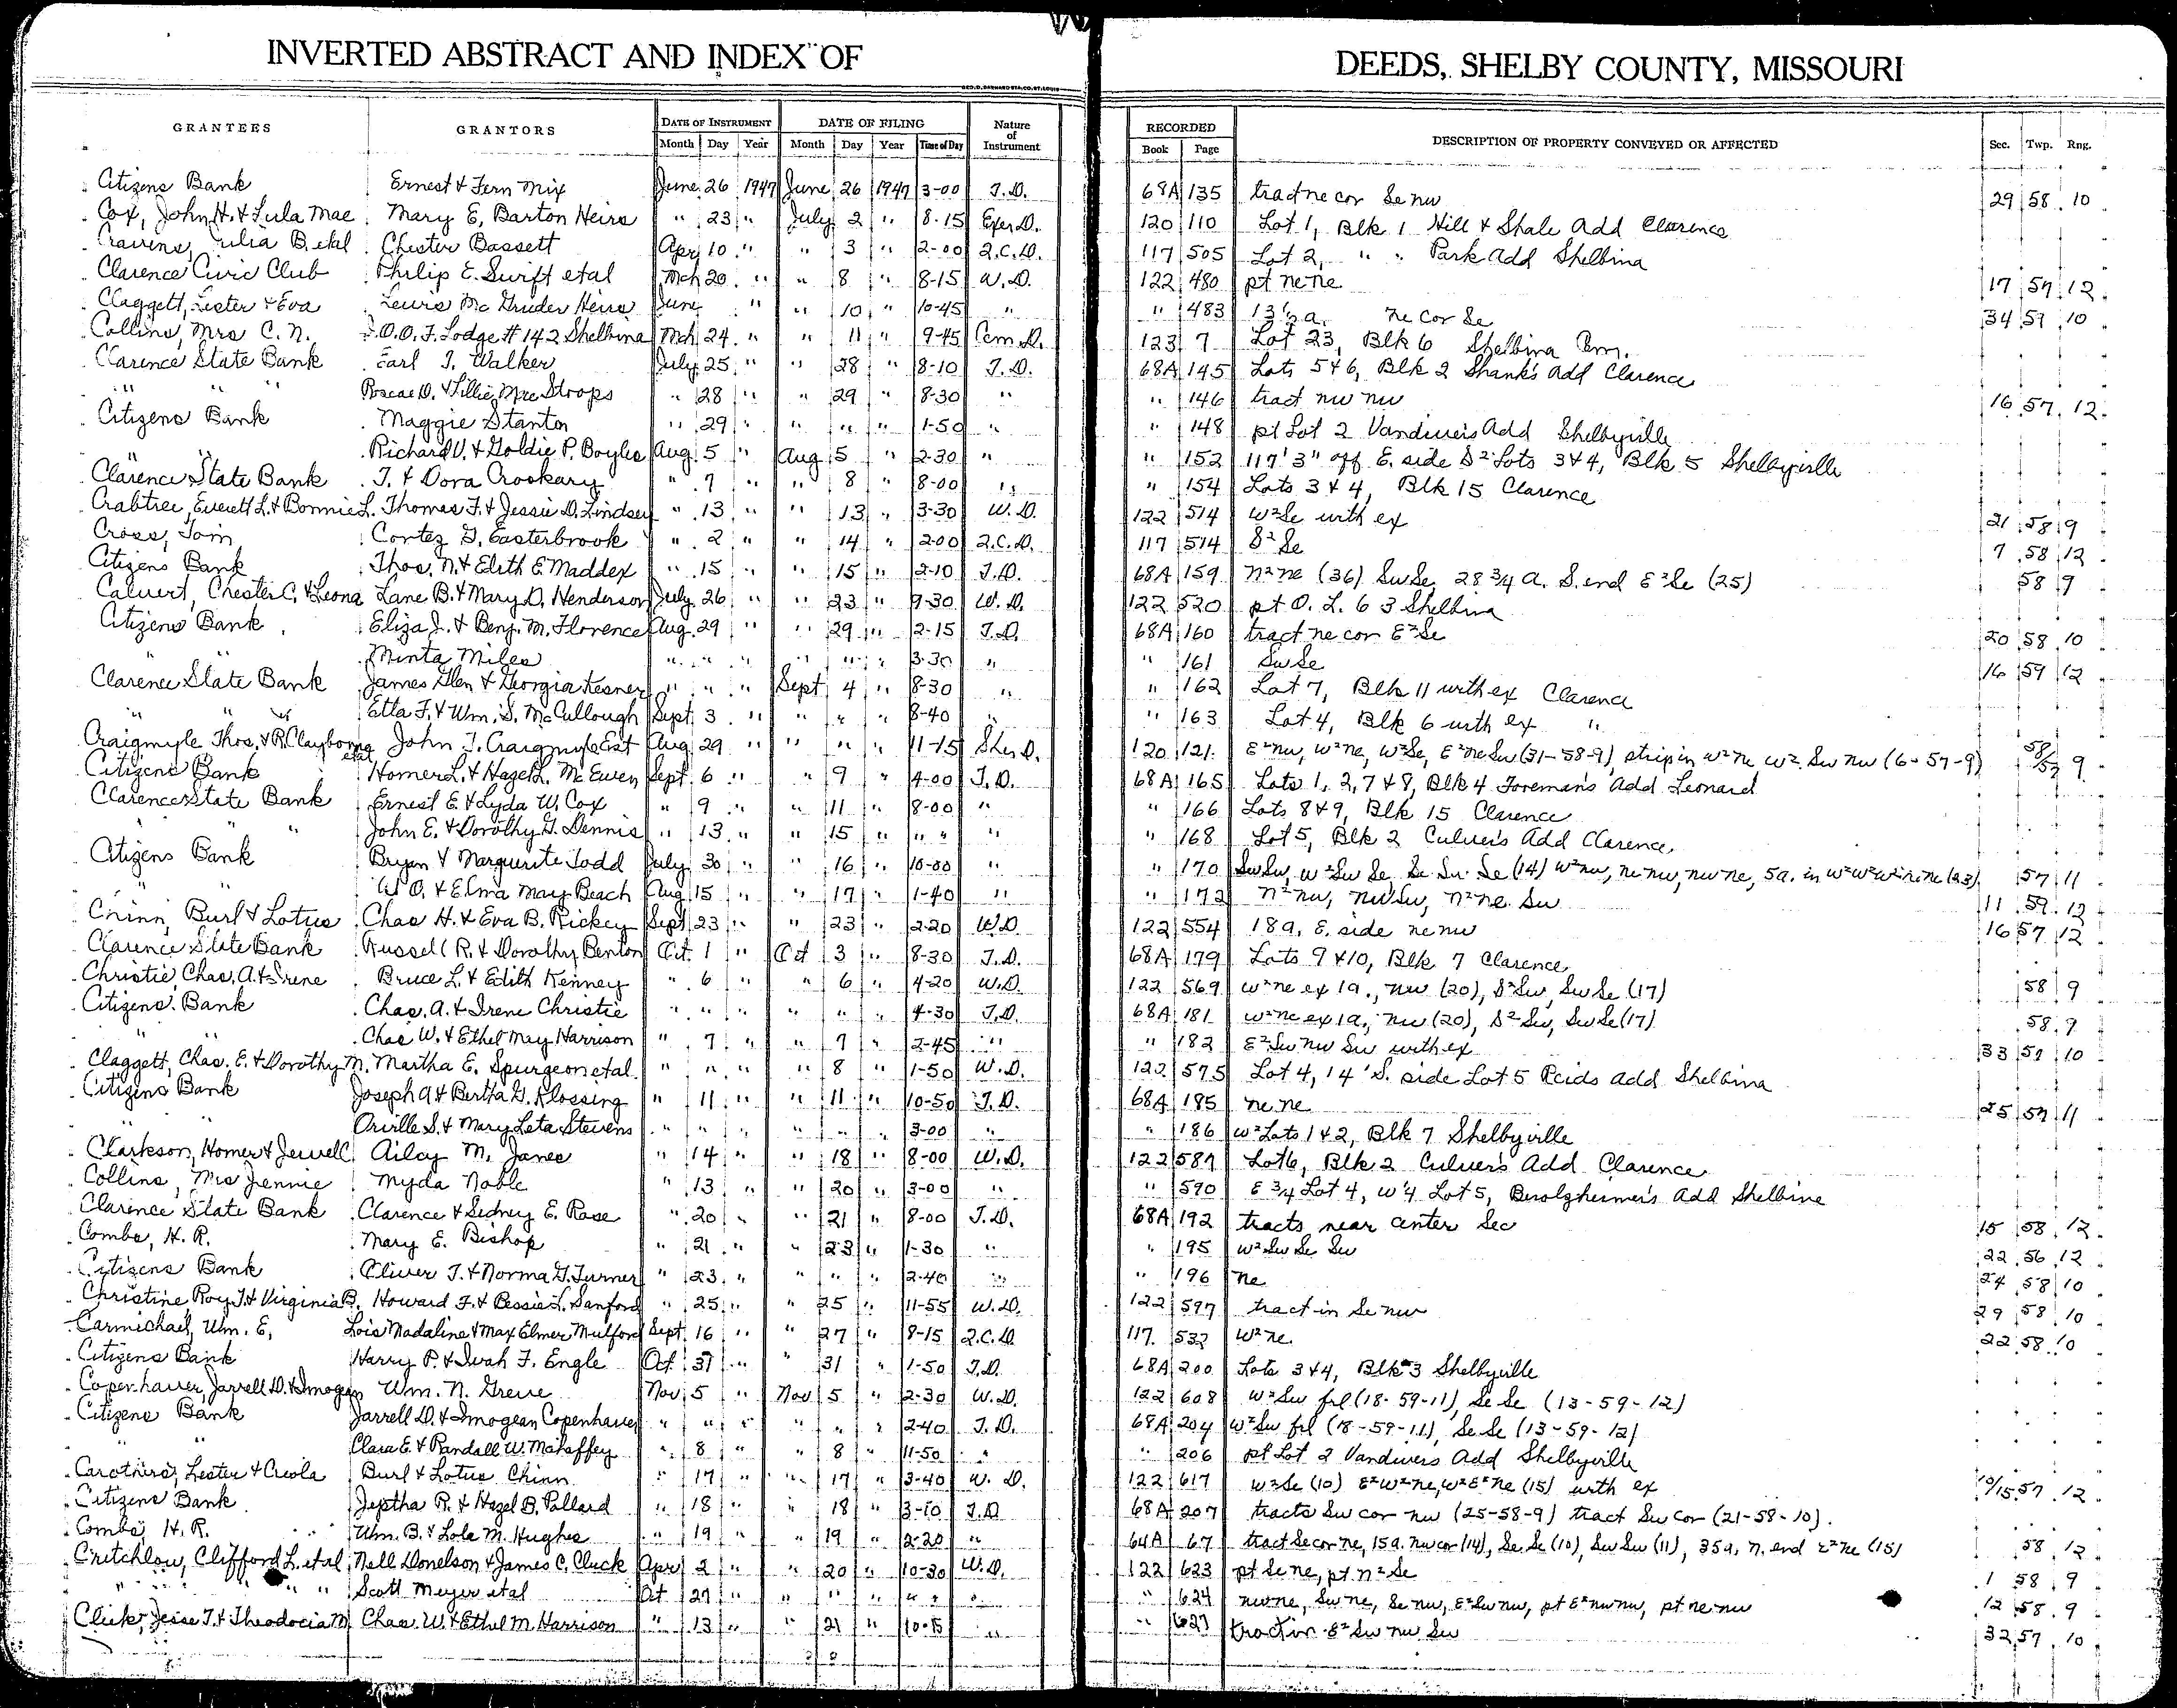 INVERTED ABSTRACT AND INDEX OF DEEDS, SHELBY COUNTY, MISSOURI
GEO. D. BARNARD STA. CO. ST. LOUIS
GRANTEES GRANTORS DATE OF INSTRUMENT DATE OF FILING Nature of Instrument RECORDED DESCRIPTION OF PROPERTY CONVEYED OR AFFECTED Sec. Twp. Rng.
Month Day Year Month Day Year Time of Day Book Page
Citizens Bank Ernest & Fern Mix June 26 1947 June 26 1947 3-00 T.D. 68A 135 tract ne cor Se nw 29 58 10
Cox, John H. & Lula Mae Mary E. Barton Heirs " 23 " July 2 " 8-15 Exer D. 120 110 Lot 1, Blk 1 Hill & Shale Add Clarence
Cravens, Julia B. etal Chester Bassett Apr 10 " " 3 " 2-00 Q.C.D. 117 505 Lot 2, " " Park Add Shelbina
Clarence Civic Club Philip E. Swift etal Mch 20 " " 8 " 8-15 W.D. 122 480 pt ne ne 17 57 12
Claggett, Lester & Eva Lewis McGruder Heirs June " " 10 " 10-45 " " 483 13½ a. ne cor Se 34 59 10
Collins, Mrs C. N. I.O.O.F. Lodge # 142 Shelbina Mch 24 " " 11 " 9-45 Cem D. 123 7 Lot 23, Blk 6 Shelbina Cem.
Clarence State Bank Earl T. Walker July 25 " " 28 " 8-10 T.D. 68A 145 Lots 5 & 6, Blk 2 Shank's Add Clarence
" " " Roscoe D. & Lillie Mae Stroops " 28 " " 29 " 8-30 " " 146 tract nw nw 16 57 12
Citizens Bank Maggie Stanton " 29 " " " " 1-50 " " 148 pt Lot 2 Vandiver's Add Shelbyville
" " Richard V. & Goldie P. Boyles Aug 5 " Aug 5 " 2-30 " " 152 117' 3" off E. side S² Lots 3 & 4, Blk 5 Shelbyville
Clarence State Bank T. & Dora Crookary " 7 " " 8 " 8-00 " " 154 Lots 3 & 4, Blk 15 Clarence
Crabtree, Everett L. & Bonnie L. Thomas F. & Jessie D. Lindsey " 13 " " 13 " 3-30 W.D. 122 514 W² Se with ex 21 58 9
Cross, Tom Cortez G. Easterbrook " 2 " " 14 " 2-00 Q.C.D. 117 514 S² Se 7 58 12
Citizens Bank Thos. N. & Edith E. Maddex " 15 " " 15 " 2-10 T.D. 68A 159 N² ne (36) Sw Se, 28 3/4 a. S. end E² Se (25) 58 9
Calvert, Chester C. & Leona Lane B. & Mary D. Henderson July 26 " " 23 " 9-30 W.D. 122 520 pt O. L. 63 Shelbina
Citizens Bank Eliza J. & Benj. M. Florence Aug. 29 " " 29 " 2-15 T.D. 68A 160 tract ne cor E² Se 20 58 10
" " Minta Miles " " " " " " 3-30 " " 161 Sw Se 16 59 12
Clarence State Bank James Glen & Georgia Kesner " " " Sept 4 " 8-30 " " 162 Lot 7, Blk 11 with ex Clarence
" " " Etta F. & Wm. S. McCullough Sept 3 " " " " 8-40 " " 163 Lot 4, Blk 6 with ex "
Craigmyle Thos. & R. Clayborne etal John T. Craigmyle Est Aug 29 " " " " 11-15 Sher D. 120 121 E² nw, W² ne, W² Se, E² ne Sw (31-58-9) strip in W² ne W² Sw nw (6-57-9) 58/57 9
Citizens Bank Homer L. & Hazel L. McEwen Sept. 6 " " 9 " 4-00 T.D. 68A 165 Lots 1, 2, 7 & 8, Blk 4 Foreman's Add Leonard
Clarence State Bank Ernest E. & Lyda W. Cox " 9 " " 11 " 8-00 " " 166 Lots 8 & 9, Blk 15 Clarence
" " John E. & Dorothy G. Dennis " 13 " " 15 " " " " " 168 Lot 5, Blk 2 Culver's Add Clarence
Citizens Bank Bryan & Marguerite Todd July 30 " " 16 " 10-00 " " 170 Sw Sw, W² Sw Se, Se Sw Se (14) W² nw, ne nw, nw ne, 5a. in W² W² W² ne ne (23) 57 11
" " W. O. & Elma May Beach Aug 15 " " 17 " 1-40 " " 172 N² nw, nw Sw, N² ne Sw 11 59 12
Chinn, Burl & Lotus Chas H. & Eva B. Rickey Sept 23 " " 23 " 2-20 W.D. 122 554 18 a. E. side ne nw 16 57 12
Clarence State Bank Russell R. & Dorothy Benton Oct. 1 " Oct 3 " 8-30 T.D. 68A 179 Lots 9 & 10, Blk 7 Clarence
Christie, Chas. A. & Irene Bruce L. & Edith Kenney " 6 " " 6 " 4-20 W.D. 122 569 W² ne ex 1a., nw (20), S² Sw, Sw Se (17) 58 9
Citizens Bank Chas. A. & Irene Christie " " " " " " 4-30 T.D. 68A 181 W² ne ex 1a., nw (20), S² Sw, Sw Se (17) 58 9
" " Chas W. & Ethel May Harrison " 7 " " 7 " 2-45 " " 182 E² Sw nw Sw with ex 33 57 10
Claggett, Chas. E. & Dorothy M. Martha E. Spurgeon etal " " " " 8 " 1-50 W.D. 122 575 Lot 4, 14' S. side Lot 5 Reids Add Shelbina
Citizens Bank Joseph A. & Bertha G. Klossing " 11 " " 11 " 10-50 T.D. 68A 185 ne ne 25 57 11
" " Orville S. & Mary Leta Stevens " " " " " " 3-00 " " 186 W² Lots 1 & 2, Blk 7 Shelbyville
Clarkson, Homer & Jewell Ailcy M. Janes " 14 " " 18 " 8-00 W.D. 122 587 Lot 6, Blk 2 Culver's Add Clarence
Collins, Mrs Jennie Myda Noble " 13 " " 20 " 3-00 " " 590 E 3/4 Lot 4, W ¼ Lot 5, Berolzheimer's Add Shelbina
Clarence State Bank Clarence & Sidney E. Rose " 20 " " 21 " 8-00 T.D. 68A 192 tracts near center Sec 15 58 12
Combs, H. R. Mary E. Bishop " 21 " " 23 " 1-30 " " 195 W² Sw Se Sw 22 56 12
Citizens Bank Oliver T. & Norma G. Turner " 23 " " " " 2-40 " " 196 ne 24 58 10
Christine Roy T. & Virginia B. Howard F. & Bessie L. Sanford " 25 " " 25 " 11-55 W.D. 122 597 tract in Se nw 29 58 10
Carmichael, Wm. E. Lois Madaline & Max Elmer Mulford Sept. 16 " " 27 " 8-15 Q.C.D. 117 532 W² ne 22 58 10
Citizens Bank Harry P. & Ivah F. Engle Oct 31 " " 31 " 1-50 T.D. 68A 200 Lots 3 & 4, Blk 3 Shelbyville
Copenhaver, Jarrell D. & Imogean Wm. N. Greve Nov 5 " Nov 5 " 2-30 W.D. 122 608 W² Sw frl (18-59-11), Se Se (13-59-12)
Citizens Bank Jarrell D. & Imogean Copenhaver " " " " " " 2-40 T.D. 68A 204 W² Sw frl (18-59-11), Se Se (13-59-12)
" " Clara E. & Randall W. Mahaffey " 8 " " 8 " 11-50 " " 206 pt Lot 2 Vandivers Add Shelbyville
Carothers, Lester & Creola Burl & Lotus Chinn " 17 " " 17 " 3-40 W. D. 122 617 W² Se (10) E² W² ne, W² E² ne (15) with ex 10/15 57 12
Citizens Bank Jeptha R. & Hazel B. Pollard " 18 " " 18 " 3-10 T.D. 68A 207 tracts Sw cor nw (25-58-9) tract Sw cor (21-58-10).
Combs, H. R. Wm. B. & Lola M. Hughes " 19 " " 19 " 2-20 " 64A 67 tract Se cor ne, 15a. nw cor (14), Se Se (10), Sw Sw (11), 35a. N. end E² ne (15) 58 12
Critchlow, Clifford L. etal Nell Donelson & James C. Cluck Apr 2 " " 20 " 10-30 W.D. 122 623 pt Se ne, pt N² Se 1 58 9
" " " " Scott Meyer etal Oct 27 " " " " " " " " 624 nw ne, Sw ne, Se nw, E² Sw nw, pt E² nw nw, pt ne nw 12 58 9
Click, Jesse T. & Theodocia M. Chas. W. & Ethel M. Harrison " 13 " " 21 " 10-15 " " 627 tract in E² Sw nw Sw 32 57 10